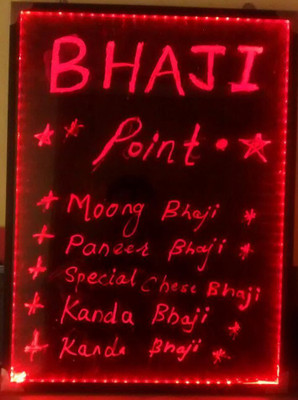 BHAJI
Point
Moong Bhaji
Paneer Bhaji
Special Chese Bhaji
Kanda Bhaji
Kanda Bhaji